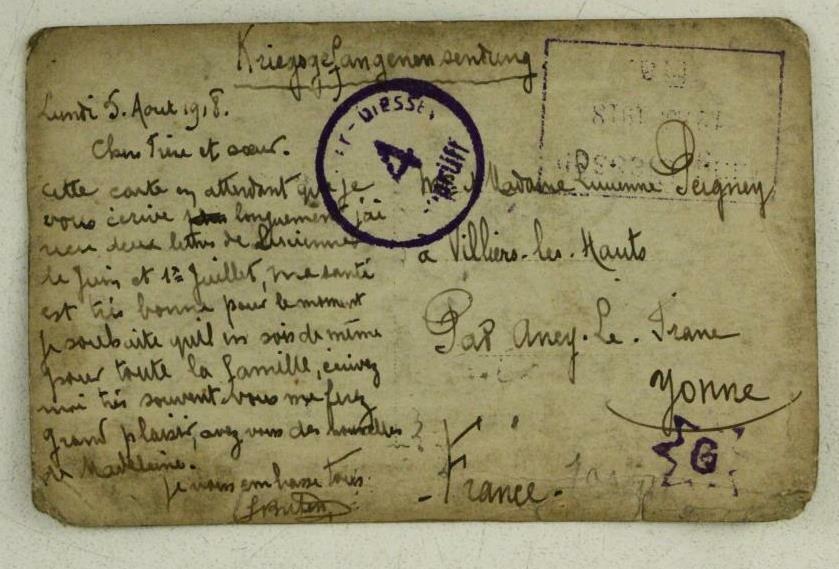 Kriegsgefangenensendung
Lundi 5. Aout 1918.
Cher Frère et sœur.
cette carte en attendant que je
vous écrive longuement j'ai
recu deux lettres de Lucienne
de Juin et 1er Juillet, ma santé
est très bonne pour le moment
je souhaite qu'il en sois de même
pour toute la famille, écrivez
moi très souvent vous me ferez
grand plaisir, avez vous des nouvelles
de Madeleine.
je vous embrasse tous
DIESSEN
4
Geprüft
Madame Lucienne Peigney
a Villiers-les-Hauts
Par Ancy-Le-Franc
Yonne
G
-France-